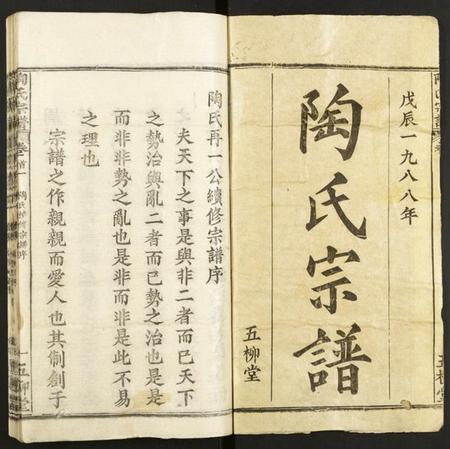 戊辰一九八八年
陶氏宗譜
五柳堂
陶氏再一公續修宗譜序
夫天下之事是與非二者而已天下
之勢治與亂二者而已勢之治也是是
而非非勢之亂也是非而非是此不易
之理也
宗譜之作親親而愛人也其制創于
陶氏宗譜
五柳堂